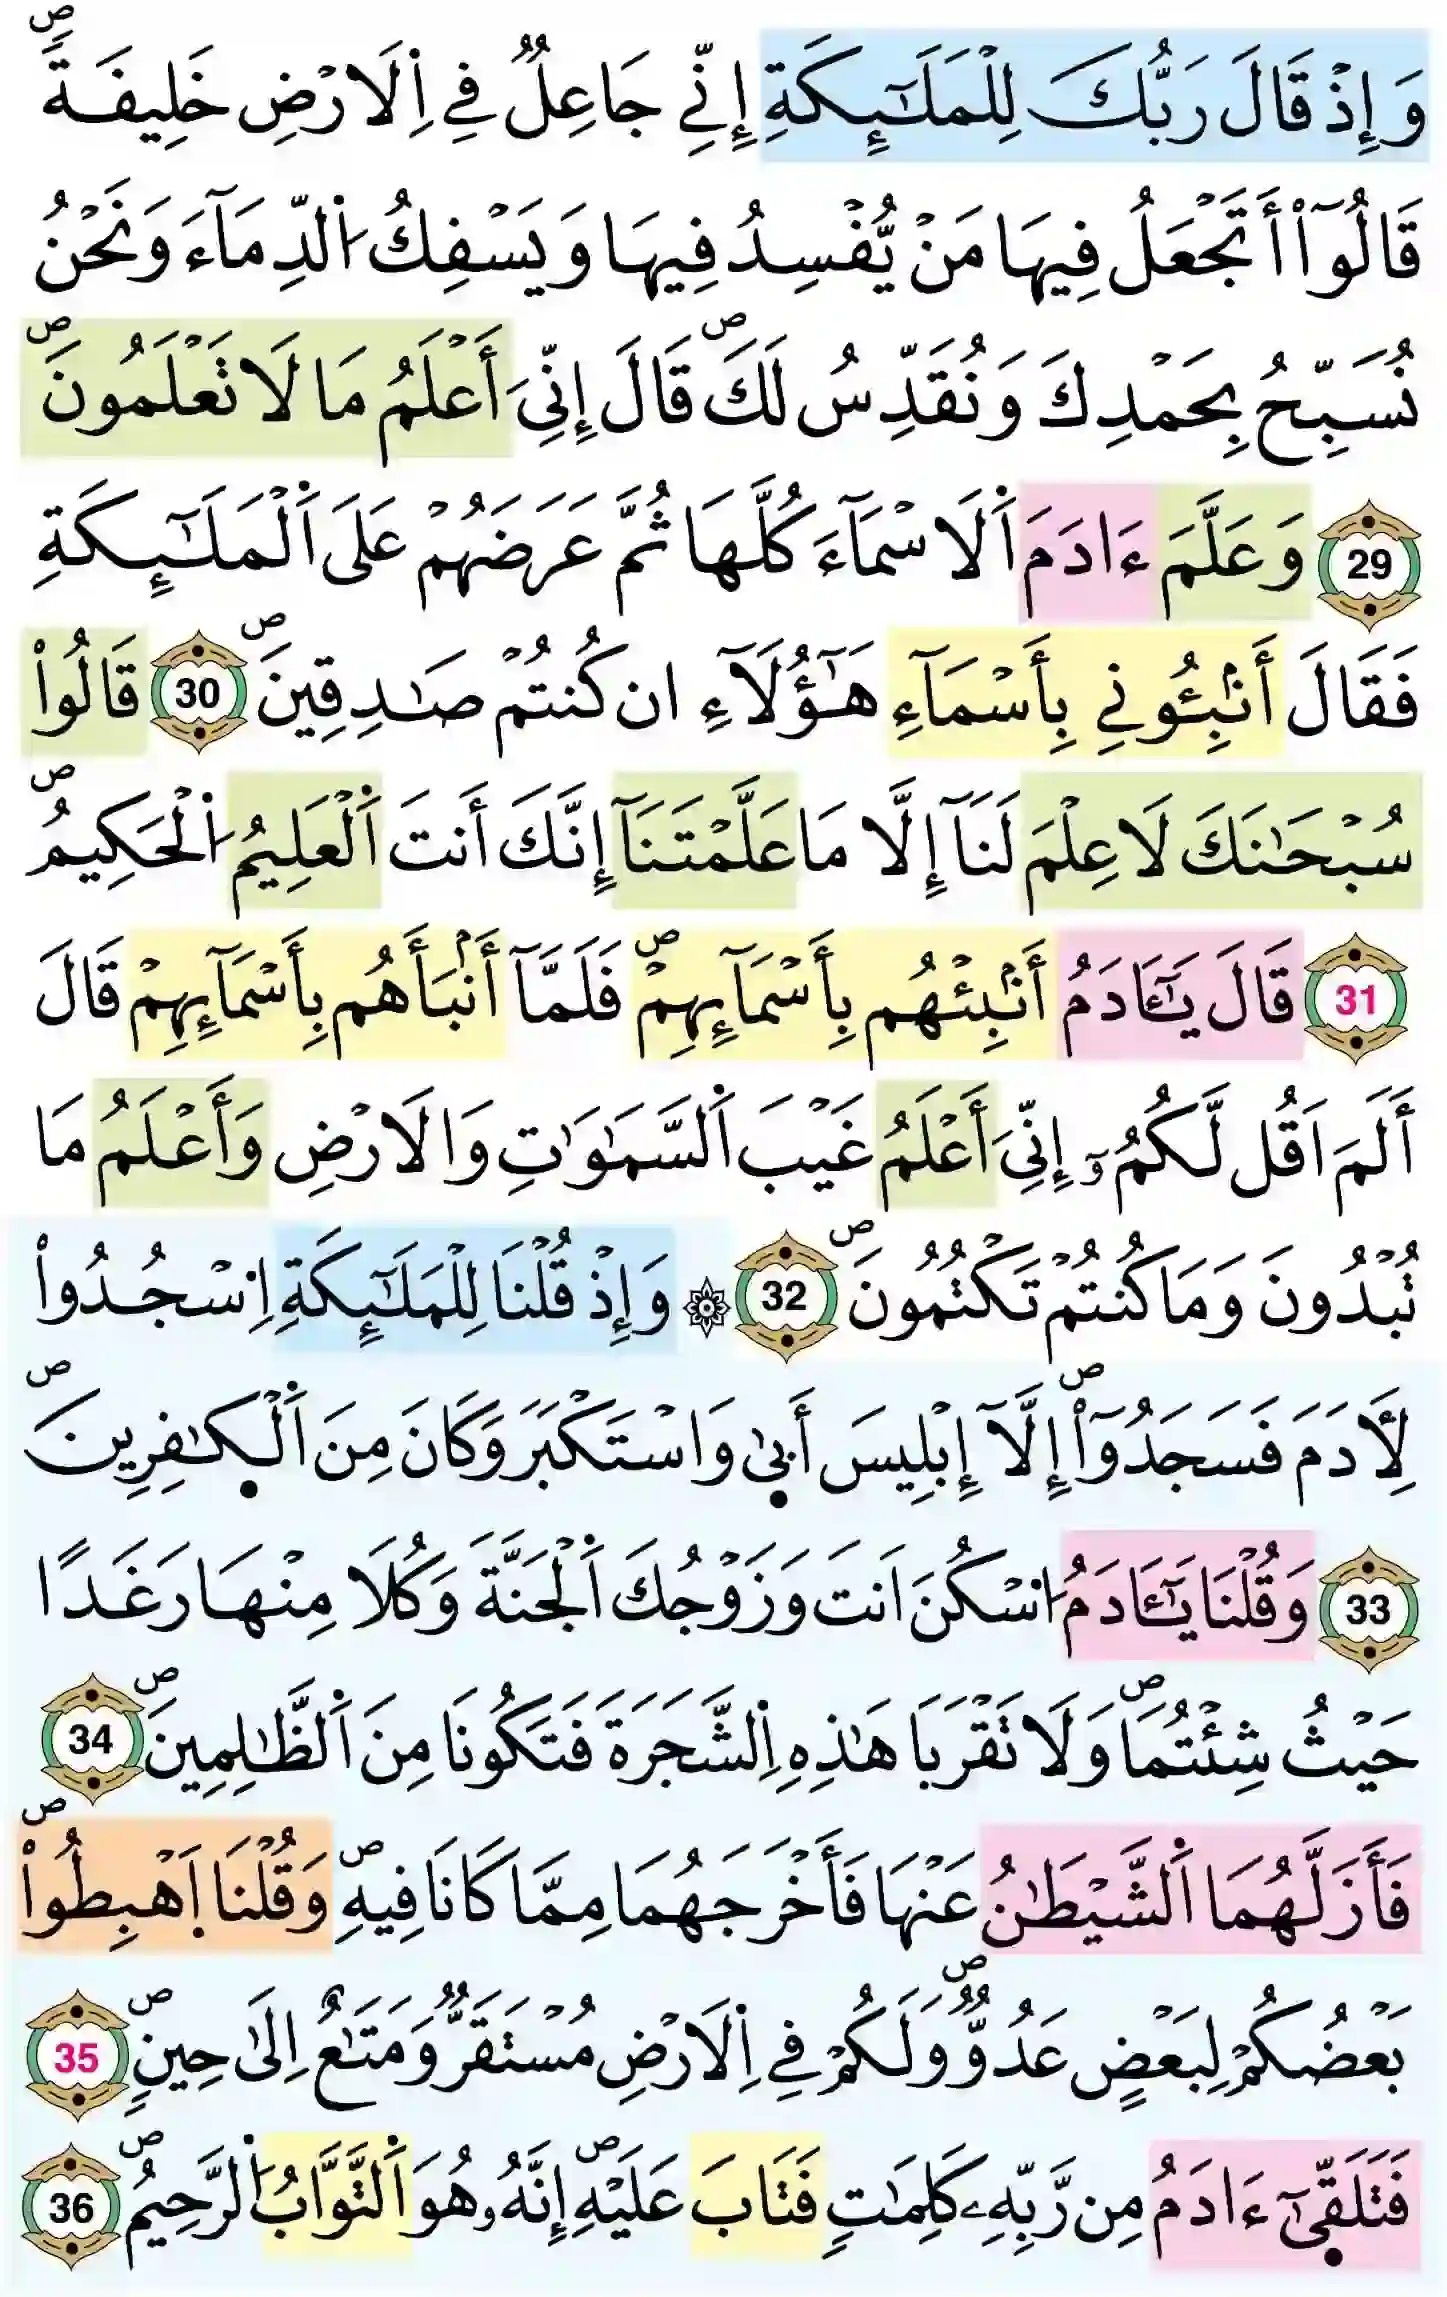 وَإِذْ قَالَ رَبُّكَ لِلْمَلَٰٓئِكَةِ إِنِّے جَاعِلٌ فِے اِ۬لَارْضِ خَلِيفَةٗۖ
قَالُوٓاْ أَتَجْعَلُ فِيهَا مَنْ يُّفْسِدُ فِيهَا وَيَسْفِكُ اُ۬لدِّمَآءَ وَنَحْنُ
نُسَبِّحُ بِحَمْدِكَ وَنُقَدِّسُ لَكَۖ قَالَ إِنِّيَ أَعْلَمُ مَا لَا تَعْلَمُونَۖ
29 وَعَلَّمَ ءَادَمَ اَ۬لَاسْمَآءَ كُلَّهَا ثُمَّ عَرَضَهُمْ عَلَى اَ۬لْمَلَٰٓئِكَةِ
فَقَالَ أَنۢبِـُٔونِے بِأَسْمَآءِ هَٰٓؤُلَآءِ ان كُنتُمْ صَٰدِقِينَۖ 30 قَالُواْ
سُبْحَٰنَكَ لَا عِلْمَ لَنَآ إِلَّا مَا عَلَّمْتَنَآ إِنَّكَ أَنتَ اَ۬لْعَلِيمُ اُ۬لْحَكِيمُۖ
31 قَالَ يَٰٓـَٔادَمُ أَنۢبِئْهُم بِأَسْمَآئِهِمْۖ فَلَمَّآ أَنۢبَأَهُم بِأَسْمَآئِهِمْ قَالَ
أَلَمَ اَقُل لَّكُمُۥٓ إِنِّيَ أَعْلَمُ غَيْبَ اَ۬لسَّمَٰوَٰتِ وَالَارْضِ وَأَعْلَمُ مَا
تُبْدُونَ وَمَا كُنتُمْ تَكْتُمُونَۖ 32 ۞ وَإِذْ قُلْنَا لِلْمَلَٰٓئِكَةِ اِ۟سْجُدُواْ
لِأٓدَمَ فَسَجَدُوٓاْۖ إِلَّآ إِبْلِيسَ أَب۪ىٰ وَاسْتَكْبَرَ وَكَانَ مِنَ اَ۬لْكٰ۪فِرِينَۖ
33 وَقُلْنَا يَٰٓـَٔادَمُ اُ۟سْكُنَ اَنتَ وَزَوْجُكَ اَ۬لْجَنَّةَ وَكُلَا مِنْهَا رَغَداً
حَيْثُ شِئْتُمَاۖ وَلَا تَقْرَبَا هَٰذِهِ اِ۬لشَّجَرَةَ فَتَكُونَا مِنَ اَ۬لظَّٰلِمِينَۖ 34
فَأَزَلَّهُمَا اَ۬لشَّيْطَٰنُ عَنْهَا فَأَخْرَجَهُمَا مِمَّا كَانَا فِيهِۖ وَقُلْنَا اَ۪هْبِطُواْۖ
بَعْضُكُمْ لِبَعْضٍ عَدُوّٞۖ وَلَكُمْ فِے اِ۬لَارْضِ مُسْتَقَرّٞ وَمَتَٰعٌ اِلَىٰ حِينٖۖ 35
فَتَلَقّ۪ىٰٓ ءَادَمُ مِن رَّبِّهِۦ كَلِمَٰتٖ فَتَابَ عَلَيْهِۖ إِنَّهُۥ هُوَ اَ۬لتَّوَّابُ اُ۬لرَّحِيمُۖ 36